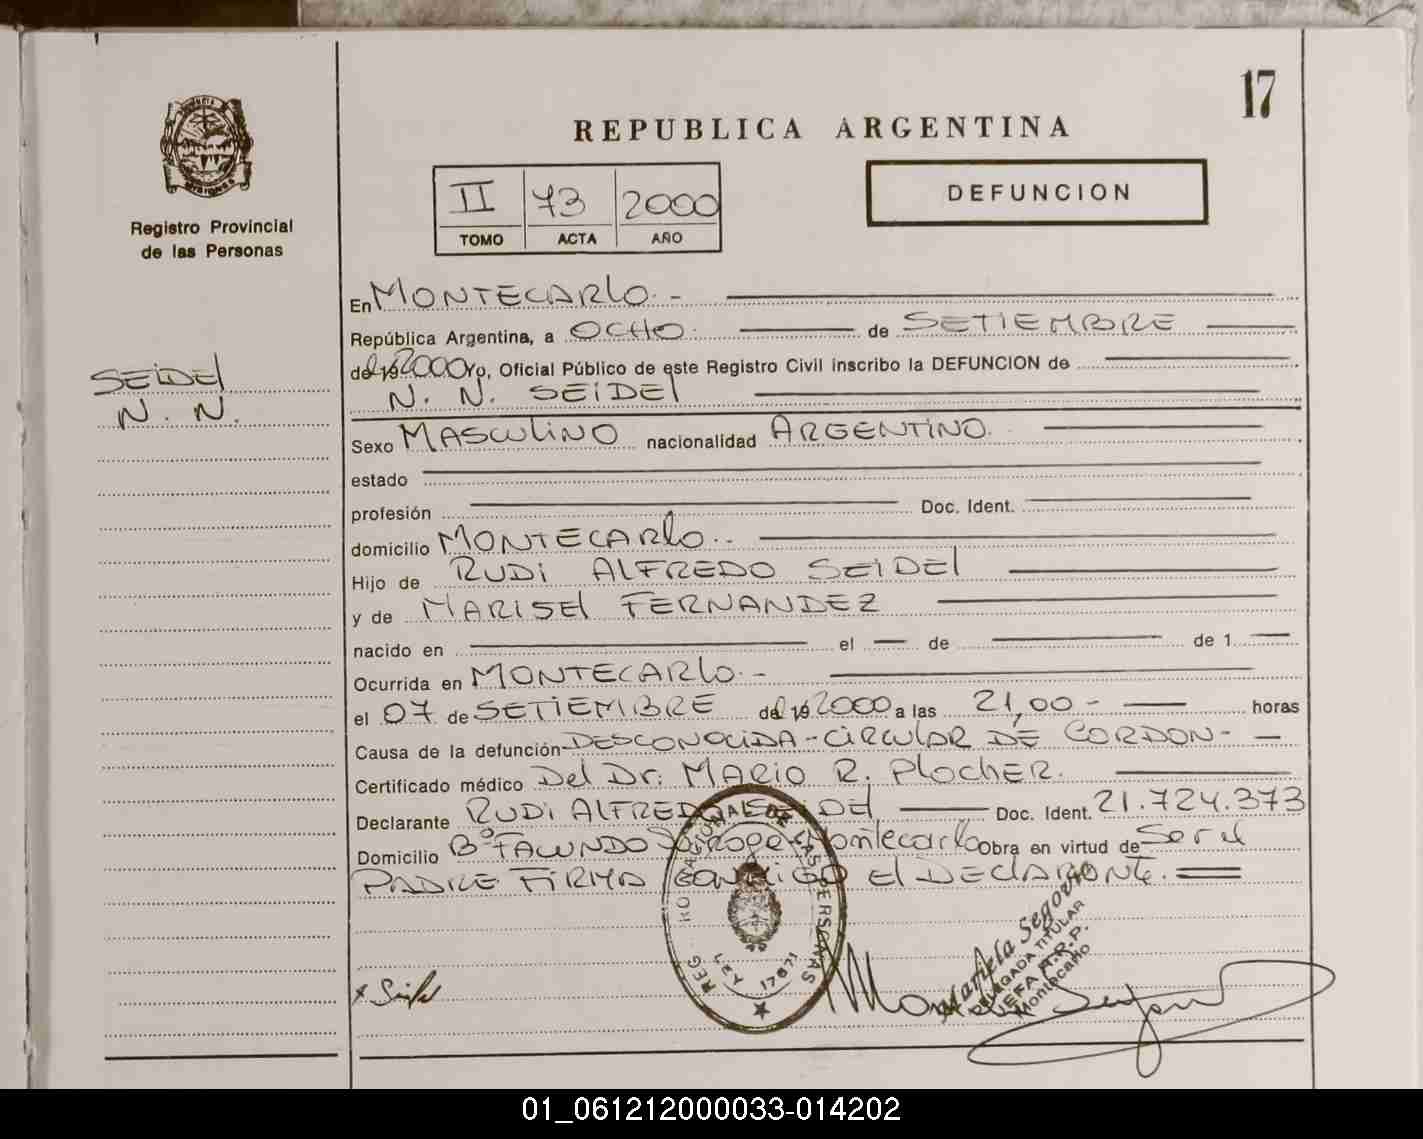 17
REPUBLICA ARGENTINA
II 73 2000
TOMO ACTA AÑO
DEFUNCION
Registro Provincial
de las Personas
SEIDEL
N. N.
En MONTECARLO. -
República Argentina, a OCHO. de SETIEMBRE
del 2000 Yo, Oficial Público de este Registro Civil inscribo la DEFUNCION de
N. N. SEIDEL
Sexo MASCULINO nacionalidad ARGENTINO.
estado
profesión Doc. Ident.
domicilio MONTECARLO. -
Hijo de RUDI ALFREDO SEIDEL
y de MARISEL FERNANDEZ
nacido en el de de 1
Ocurrida en MONTECARLO. -
el 07 de SETIEMBRE del 2000 a las 21,00 - horas
Causa de la defunción DESCONOCIDA - CIRCULAR DE CORDON -
Certificado médico Del Dr. MARIO R. PlocHER.
Declarante RUDI ALFREDO SEIDEL Doc. Ident. 21.724.373
Domicilio Bº FACUNDO Montecarlo Obra en virtud de Ser el
PADRE FIRMA CONMIGO El DECLARANTE.
REG. LEY 17671
DE LAS PERSONAS
Segovia
DELEGADA TITULAR
JEFA A.R.P.
Montecarlo
01_061212000033-014202